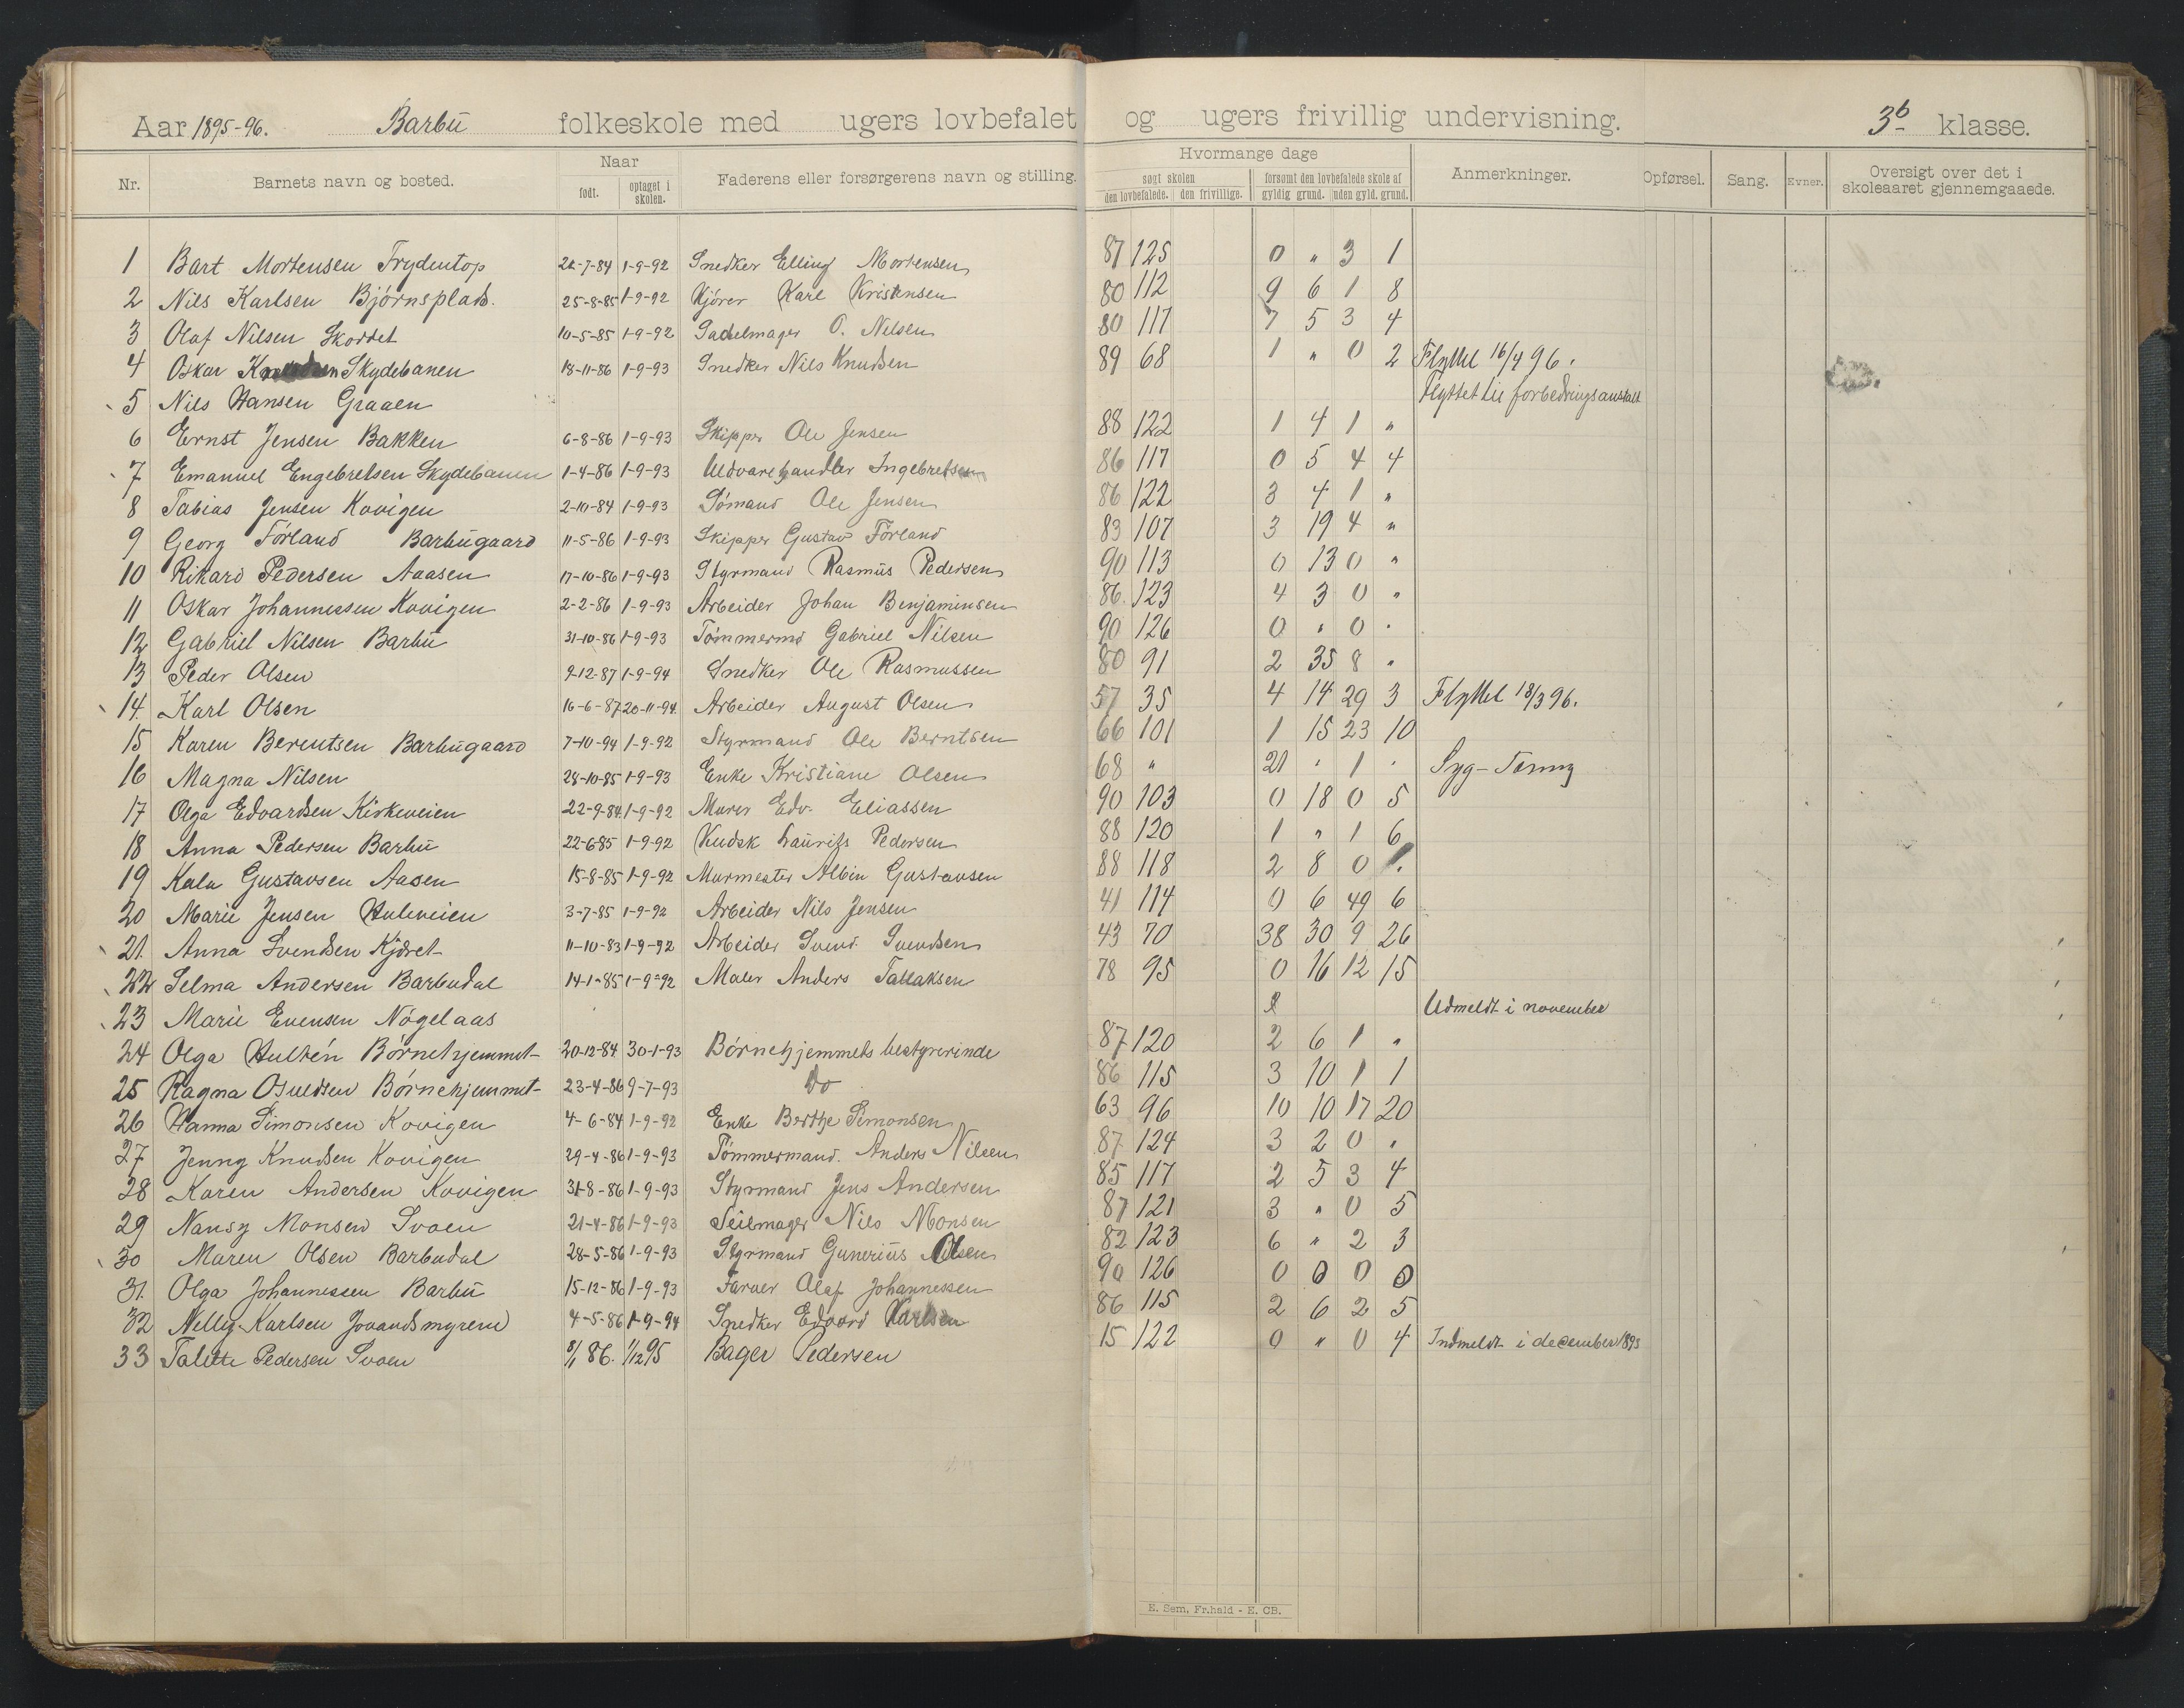 Aar 1895-96. Barbu folkeskole med ugers lovbefalet og ugers frivillig undervisning. 3b klasse.
Nr. Barnets navn og bosted. Naar født. optaget i skolen. Faderens eller forsørgerens navn og stilling. Hvormange dage søgt skolen den lovbefalede. den frivillige. forsømt den lovbefalede skole af gyldig grund. uden gyld. grund. Anmerkninger. Opførsel. Sang. Evner. Oversigt over det i skoleaaret gjennemgaaede.
1 Bart Mortensen Frydentop 22-7-84 1-9-92 Snedker Elling Mortensen 87 125 0 " 3 1
2 Nils Karlsen Bjørnsplads. 25-8-85 1-9-92 Kjører Karl Kristensen 80 112 9 6 1 8
3 Olaf Nilsen Skoddet 10-5-85 1-9-92 Sadelmager O. Nilsen 80 117 7 5 3 4
4 Oskar Knudsen Skydebanen 18-11-86 1-9-93 Snedker Nils Knudsen 89 68 1 " 0 2 Flyttet 16/4 96.
5 Nils Hansen Graaen Flyttet til forbedringsanstalt
6 Ernst Jensen Bakken 6-8-86 1-9-93 Skipper Ole Jensen 88 122 1 4 1 "
7 Emanuel Engebretsen Skydebanen 1-4-86 1-9-93 Uldvarehandler Ingebretsen 86 117 0 5 4 4
8 Tobias Jensen Kovigen 2-10-84 1-9-93 Sømand Ole Jensen 86 122 3 4 1 "
9 Georg Førland Barbugaard 11-5-86 1-9-93 Skipper Gustav Førland 83 107 3 19 4 "
10 Rikard Pedersen Aaasen 17-10-86 1-9-93 Styrmand Rasmus Pedersen 90 113 0 13 0 "
11 Oskar Johannessen Kovigen 2-2-86 1-9-93 Arbeider Johan Benjaminsen 86. 123 4 3 0 "
12 Gabriel Nilsen Barbu 31-10-86 1-9-93 Tømmermd Gabriel Nilsen 90 126 0 " 0 "
13 Peder Olsen 9-12-87 1-9-94 Snedker Ole Rasmussen 80 91 2 35 8 "
14. Karl Olsen 16-6-87 20-11-94. Arbeider August Olsen 57 35 4 14 29 3 Flyttet 18/3 96.
15 Karen Berentsen Barbugaard 7-10-94 1-9-92 Styrmand Ole Berntsen 66 101 1 15 23 10
16 Magna Nilsen 28-10-85 1-9-93 Enke Kristiane Olsen 68 " 21 " 1 "
17 Olga Edvardsen Kirkeveien 22-9-84 1-9-92 Murer Edv. Eliassen 90 103 0 18 0 5
18 Anna Pedersen Barbu 22-6-85 1-9-92 Kudsk Lauritz Pedersen 88 120 1 " 1 6
19 Kala Gustavsen Aasen 15-8-85 1-9-92 Murmester Albin Gustavsen 88 118 2 8 0
20 Marie Jensen Huleveien 3-7-85 1-9-92 Arbeider Nils Jensen 41 114 0 6 49 6
21. Anna Svendsen Kjøret 11-10-83 1-9-92 Arbeider Svend. Svendsen 43 70 38 30 9 26
22 Selma Andersen Barbudal 14-1-85 1-9-92 Maler Anders Tallaksen 78 95 0 16 12 15
23 Marie Evensen Nøgelaas Udmeldt i november
24 Olga Hultén Børnehjemmet 20-12-84 30-1-93 Børnehjemmets bestyrerinde 87 120 2 6 1 "
25 Ragna Osuldsen Børnehjemmet 23-4-86 9-7-93 Do 86 115 3 10 1 1
26 Hanna Simonsen Kovigen 4-6-84 1-9-92 Enke Berthe Simonsen 63 96 10 10 17 20
27 Jenny Knudsen Kovigen 29-4-86 1-9-93 Tømmermand. Anders Nilsen 87 124 3 2 0 "
28 Karen Andersen Kovigen 31-8-86 1-9-93 Styrmand Jens Andersen 85 117 2 5 3 4
29 Nansy Monsen Svoen 21-4-86 1-9-93 Seilmager Nils Monsen 87 121 3 " 0 5
30 Maren Olsen Barbudal 28-5-86 1-9-93 Styrmand Gunerius Olsen 82 123 6 " 2 3
31. Olga Johannessen Barbu 15-12-86 1-9-93 Farver Olaf Johannessen 90 126 0 0 0 0
32 Nelly Karlsen Jovandsmyrene 4-5-86 1-9-94 Snedker Edvard Karlsen 86 115 2 6 2 5
33 Talette Pedersen Svoen 8/1 86. 1/12 95 Bager Pedersen 15 122 0 " 0 4 Indmeldt i december 1895
E. Sem, Fr.hald - E. CB.